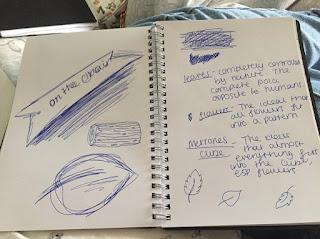 on the cheur
leaves - completely controlled
by nature. The
compete pola
opposite to humans.
flowers - The idea that
all flowers fit
into a pattern
Metrones - The ideas
cube that almost
everything fits
into the cube,
esp flowers